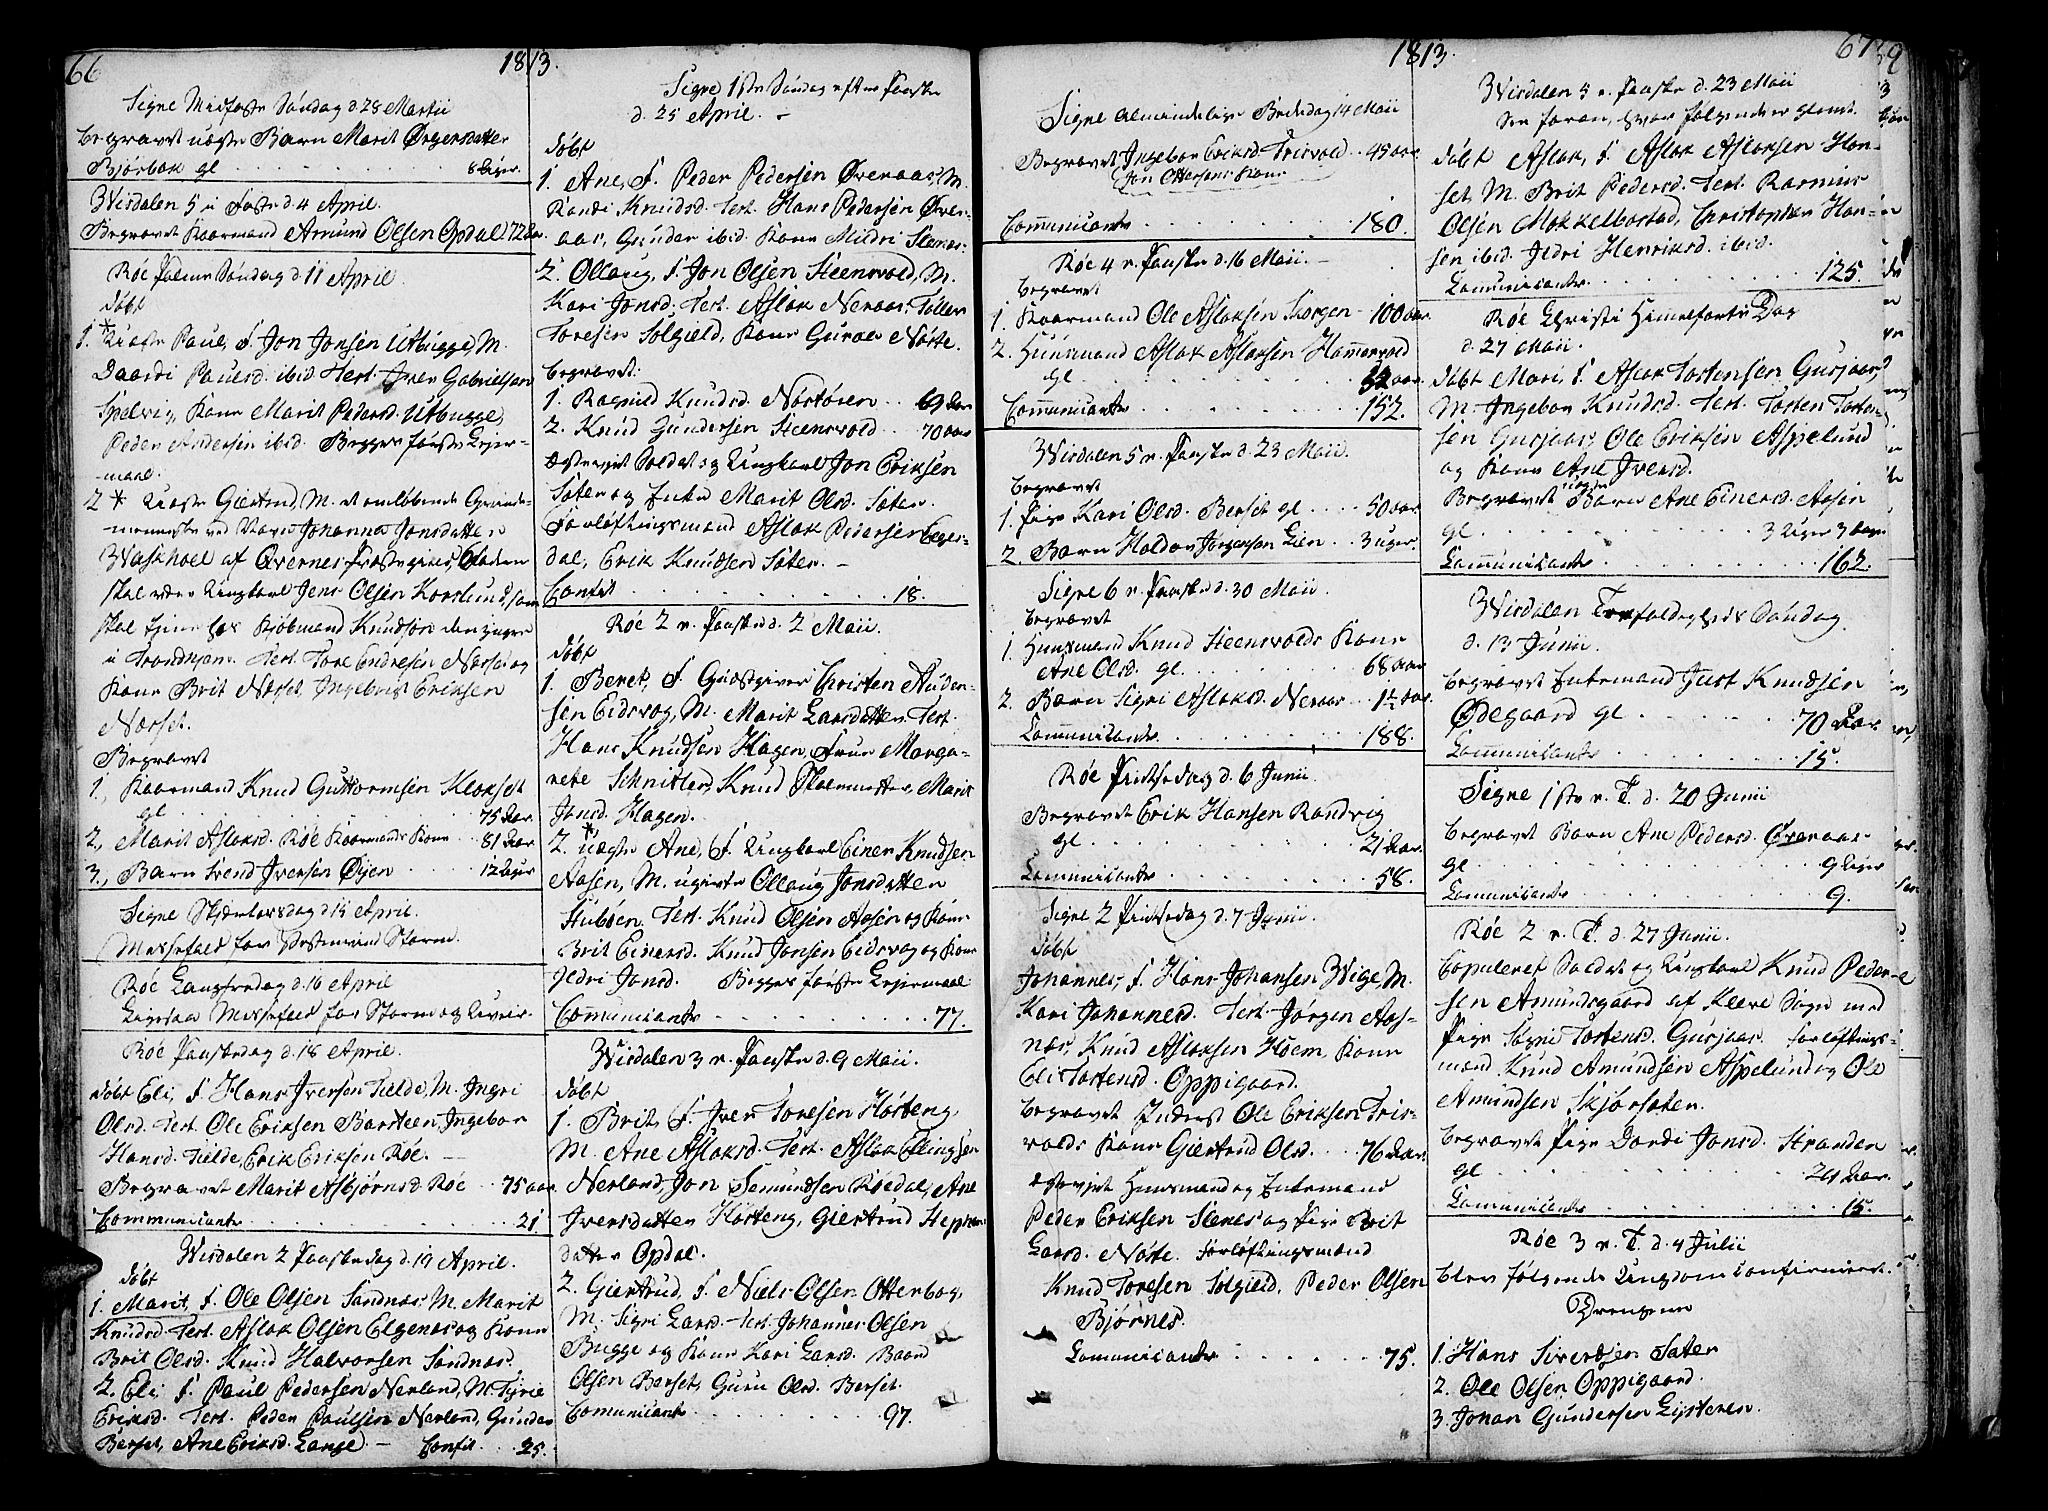 66
1813.
Signe Midfaste Søndag d. 28 Martii
begravet uægte Barn Marit Ørgersdatter
Bjørbak gl . . . 8 Uger.
Wisdalen 5 i Faste d. 4 April.
Begravet Kaarmand Amund Olsen Opdal 72 Aar.
Røe Palme Søndag d. 11 April
døbt
1. * Uægte Paul, F. Jon Jonsen Utbugge, M.
Daardi Paulsd. ibid. Test. Iver Gabrielsen
Spelvig, Kone Marit Pedersd. Utbugge,
Peder Andersen ibid. Begges første Lejer-
maal.
2 * Uægte Giertrud, M. et omløbende Qvinde-
menneske ved Navn Johanna Jonsdatter
Waskhoel af Qvernes Præstegield, Faderen
skal være Ungkarl Jens Olsen Korslund som
skal tjene hos Kjøbmand Knudson den yngre
i Trondhjem. Test. Tore Endresen Nerset og
Kone Brit Nerset, Ingebrigt Eriksen
Nerset.
Begravet
1., Kaarmand Knud Guttormsen Klokset
gl . . . 75 Aar.
2., Marit Aslaksd. Røe Kaarmands Kone . . 81 Aar
3., Barn Svend Iversen Øyen . . . 12 Uger
Signe Skjærtorsdag d. 15 April.
Messefald for Vestenvind Storm.
Røe Langfredag d. 16 April
Ligesaa Messefald for Storm og Uveir.
Røe Paaskedag d. 18 April.
døbt Eli, F. Hans Iversen Tielde, M. Ingri
Olsd. Test. Ole Eriksen Barsteen, Ingebor
Hansd. Tielde, Erik Eriksen Røe. —
Begravet Marit Asbjørnsd. Røe . . 75 aar
Communicante . . . 21.
Wisdalen 2 Paaskedag d. 19 April.
døbt
1. Marit, F. Ole Olsen Sandnæs, M. Marit
Knudsd. Test. Aslak Olsen Elgenæs og Kone
Brit Olsd. Knud Halvorsen Sandnæs.
2. Eli F. Paul Pedersen Nerland, M. Tyrie
Eriksd. Test. Peder Paulsen Nerland, Gunder
Berset, Ane Eriksd. Lange. — Confit . . . 25.
Signe 1ste Søndag efter Paaske
d. 25 April. —
døbt
1. Ane, F. Peder Pedersen Øveraas, M.
Randi Knudsd. Test. Hans Pedersen Øver-
aas, Gunder ibid. Kone Mildri Slenes.
2. Ollaug, F. Jon Olsen Steensvold, M.
Kari Jonsd. Test. Aslak Neraas, Tollev
Toresen Solgield, Kone Guroe Nøste.
begravet.
1. Ragnild Knudsd. Nørtøren . . 69 Aar
2. Knud Gundersen Steensvold . . 70 aar
Ægteviet Soldat og Ungkarl Jon Eriksen
Sæter og Enke Marit Olsd. Sæter.
Forløftningsmænd Aslak Pedersen Eeger-
dal, Erik Knudsen Sæter. —
Confit . . . 18.
Røe 2 e. Paaske d. 2 Maii.
døbt
1. Beret, F. Giæstgiver Christen Auden-
sen Eidsvog, M. Marit Larsdatter, Test.
Hans Knudsen Hagen, Frue Marga-
rete Schnitler, Knud Skolemester, Marit
Jonsd. Hagen.
2. * uægte Ane, F. Ungkarl Einer Knudsen
Aasen, M. ugivte Ollaug Jonsdatter
Stubøen. Test. Knud Olsen Aasen og Kone
Brit Einersd. Knud Jonsen Eidsvog og Kone
Ildri Jonsd. Begges første Lejermaal
Communicante . . . 77.
Wisdalen 3 e. Paaske d. 9 Maii.
døbt
1. Brit, F. Iver Toresen Hørteng,
M. Ane Aslaksd. Test. Aslak Ellingsen
Nerland, Jon Semundsen Røedal, Ane
Iversdatter Hørteng, Giertrud Steffens-
datter Opdal.
2. Giertrud, F. Niels Olsen Otterbog,
M. Sigri Larsd. Test. Johannes Olsen
Bugge og Kone Kari Larsd. Baard
Olsen Berset, Guru Olsd. Berset.
Comunicante . . . 97.
1813.
67
Signe almindelige Bededag 14 Maii
Begravet Ingebor Eriksd. Trisvold . . 45 aar.
Jon Ottersens Kone
Communicante . . . 180.
Røe 4 e. Paaske d. 16 Maii. —
begravet
1. Kaarmand Ole Aslaksen Skorgen . . 100 aar.
2. Huusmand Aslak Aslaksen Hammervold
gl . . . 32 aar.
Communicante . . . 152.
Wisdalen 5 e. Paaske d. 23 Maii.
begravet
1. Pige Kari Olsd. Berset gl . . . 50 aar.
2. Barn Haldor Jørgensen Lien . . 3 uger.
Signe 6 e. Paaske d. 30 Maii.
begravet
1. Huusmand Knud Steensvolds Kone
Ane Olsd. gl . . . 68 aar
2. Barn Sigri Aslaksd. Neraas . . 1½ aar.
Comunicante . . . 188.
Røe Pintsedag d. 6 Junii.
Begravet Erik Hansen Randvig
gl . . . 21 Aar.
Comunicante . . . 58.
Signe 2 Pintsedag d. 7 Junii.
døbt
Johannes, F. Hans Johansen Wige, M.
Kari Johannesd. Test. Jørgen Aas-
næs, Knud Aslaksen Hoem, Kone
Eli Tostensd. Oppigaard.
begravet Inderst Ole Eriksen Tris-
volds Kone Giertrud Olsd. . . . 76 Aar.
Ægteviet Huusmand og Enkemand
Peder Eriksen Slenes og Pige Brit
Larsd. Nøste. Forløftningsmænd
Knud Toresen Solgield, Peder Olsen
Bjørnes.
Comunicante . . . 75.
Wisdalen 5 e. Paaske d. 23 Maii
See foran, hvor følgende er glemt.
døbt Aslak, F. Aslak Aslaksen Han-
set, M. Brit Pedersd. Test. Rasmus
Olsen Mokkelbostad, Christopher Han-
sen ibid. Ildri Henriksd. ibid.
Comunicante . . . 125.
Røe Christi Himmelfarts Dag
d. 27 Maii.
døbt Mari, F. Aslak Tostensen Gusjaas,
M. Ingebor Knudsd. Test. Tosten Tosten-
sen Gusjaas, Ole Eriksen Aspelund
og Kone Ane Iversd.
Begravet uægte Barn Ane Einersd. Aasen
gl . . . 3 Uger 3 Dage
Comunicante . . . 162.
Wisdalen Trefoldigheds Søndag
d. 13 Junii.
begravet Enkemand Just Knudsen
Ødegaard gl . . . 70 Aar
Comunicante . . . 15.
Signe 1ste e. T. d. 20 Junii
begravet Barn Ane Pedersd. Øveraas
gl . . . 9 Uger
Comunicante . . . 9.
Røe 2 e. T. d. 27 Junii.
Copuleret Soldat og Ungkarl Knud Peder-
sen Amundsgaard af Kleve Sogn med
Pige Sigrie Tostensd. Gusjaas. Forløftnings-
mænd Knud Amundsen Aspelund og Ole
Amundsen Skjørsæter.
begravet Pige Dordi Jonsd. Stranden
gl . . . 24 Aar.
Comunicante . . . 15.
Røe 3 e. T. d. 4 Julii
blev følgende Ungdom confirmeret.
Drengene
1. Hans Sivertsen Sæter
2. Ole Olsen Oppigaard.
3. Johan Gundersen Lysteren.